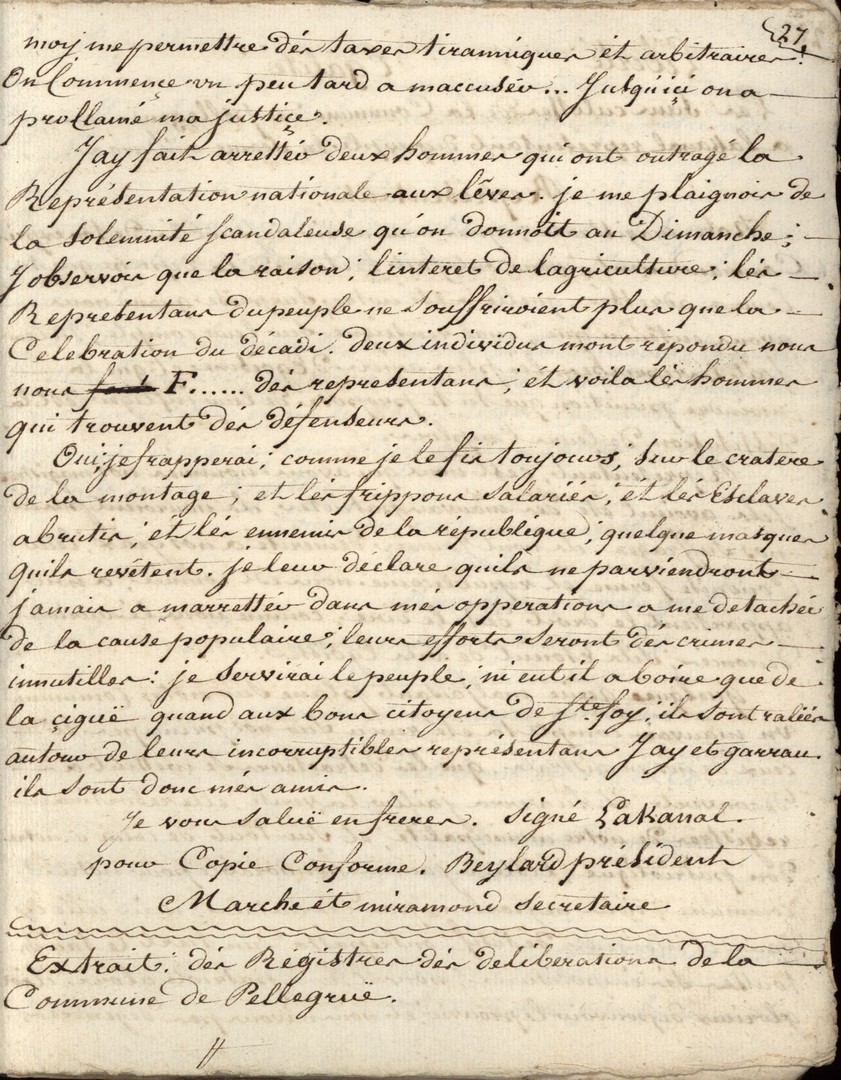 27,
moy me permettre dés taxes tiranniques ét arbitraires!
On Commençe un peu tard a maccuséu... Jusquiçi on a
procllamé ma justiçe.
Jay fait arrettéu deux hommes qui ont outragé la
Représentation nationale aux lêves. je me plaignois de
la solemnité scandaleuse qu'on donnoit au Dimanche;
Jobservois que la raison; linteret de lagriculture; lés
Representans du peuple ne souffriroient plus que la
Celebration du décadi. deux individus mont répondu nous
nous F...... dés representans; ét voila lés hommes
qui trouvent dés défenseurs.
Oui; je frapperai; comme je le fis toujours; sur le cratere
de la montage; et lés frippons salariés; ét lés Esclaves
abrutis; ét lés ennemis de la république; quelque masques
quils revêtent. je leur déclare quils ne parviendront
jamais a marrettéu dans més opperations a me detachéi
de la cause populaire; leurs efforts seront dés crimes
innutilles: je servirai le peuple; ni eut il a boire que de
la çiguë quand aux bons citoyens de Ste foy; ils sont raliés
autour de leurs incorruptibles représentans Jay et garrau
ils sont donc més amis.
Je vous saluë en freres. signé LaKanal.
pour Copie Conforme. Beylard président
Marche ét miramond secretaire
Extrait; dés Régistres dés deliberations de la
Commune de Pellegruë.